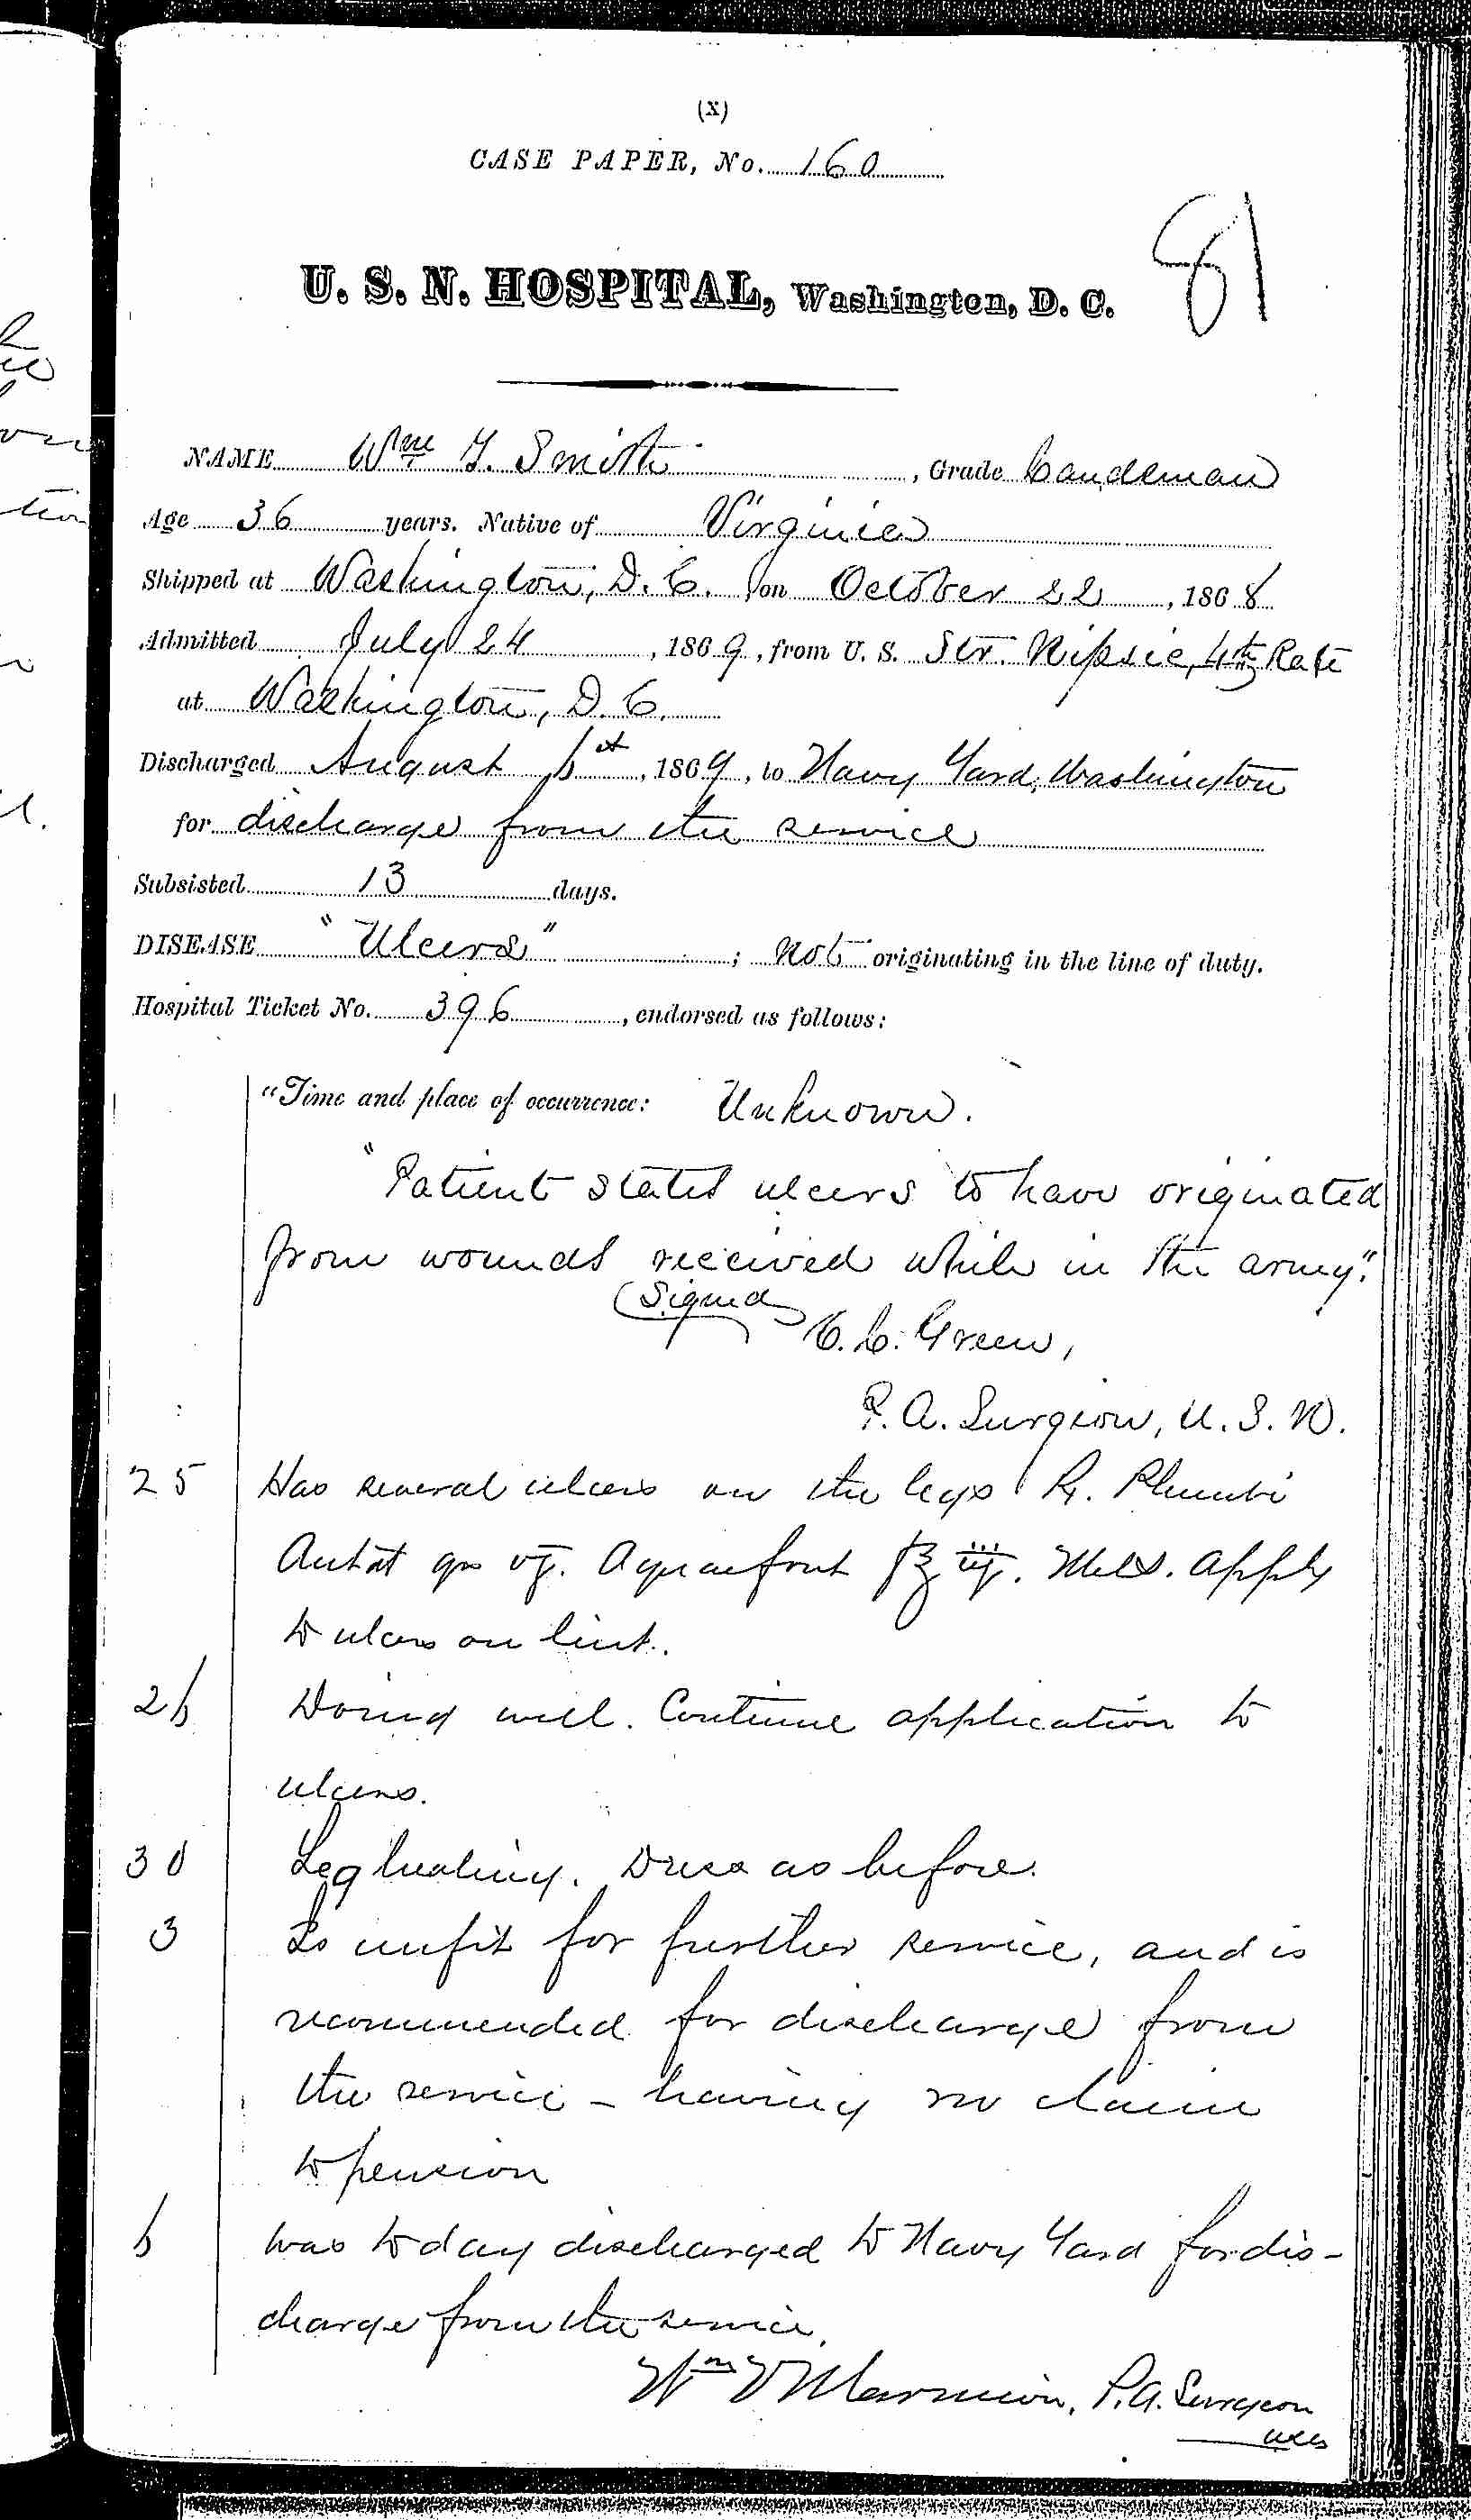 (X)
CASE PAPER, No. 160
81
U. S. N. HOSPITAL, Washington, D. C.
NAME Wm. T. Smith, Grade Landsman
Age 36 years. Native of Virginia
Shipped at Washington, D. C. on October 22, 1868
Admitted July 24, 1869, from U. S. Str. Nipsic, 4th Rate
at Washington, D. C.
Discharged August 6th, 1869, to Navy Yard, Washington
for discharge from the service
Subsisted 13 days.
DISEASE "Ulcers"; not originating in the line of duty.
Hospital Ticket No. 396, endorsed as follows:
"Time and place of occurrence: Unknown.
"Patient states ulcers to have originated
from wounds received while in the army."
(Signed)
C. C. Green,
P. A. Surgeon, U. S. N.
25 Has several ulcers on the legs ℞. Plumbi
Acetat grs vj. Aquae font f℥ iij. Mel. Apply
to ulcers on lint.
26 Doing well. Continue application to
ulcers.
30 Leg healing. Dress as before.
3 Is unfit for further service, and is
recommended for discharge from
the service - having no claim
to pension
6 Was to day discharged to Navy Yard for dis-
charge from the service.
Wm V Marmion, P. A. Surgeon
USN